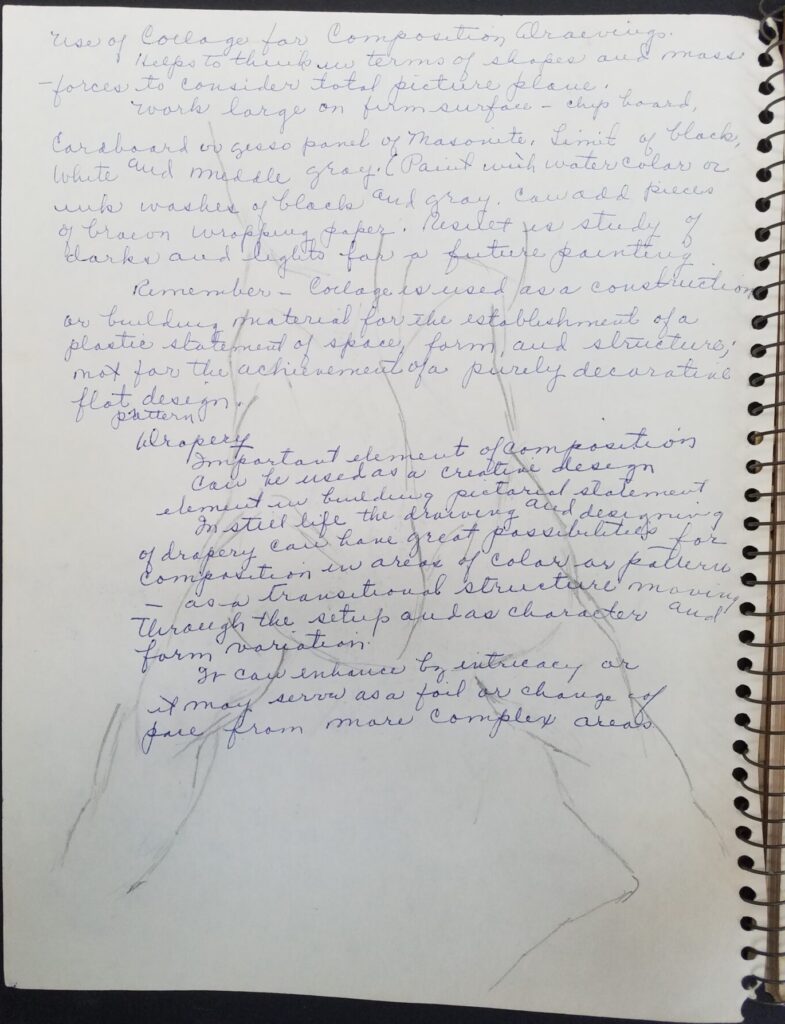 Use of Collage for Composition Drawings.
Helps to think in terms of shapes and mass
-forces to consider total picture plane.
Work large on firm surface - chip board,
Cardboard or gesso panel of Masonite. Limit of black,
White and middle gray. (Paint with water color or
ink washes of black and gray. Can add pieces
of brown wrapping paper. Result is study of
darks and lights for a future painting
Remember - Collage is used as a construction
or building material for the establishment of a
plastic statement of space, form, and structure;
not for the achievement of a purely decorative
flat design.
pattern
Drapery
Important element of composition
Can be used as a creative design
element in building pictorial statement
In still life the drawing and designing
of drapery can have great possibilities for
composition in areas of color or pattern
- as a transitional structure moving
through the setup and as character and
form variation.
It can enhance by intricacy or
it may serve as a foil or change of
pace from more complex areas